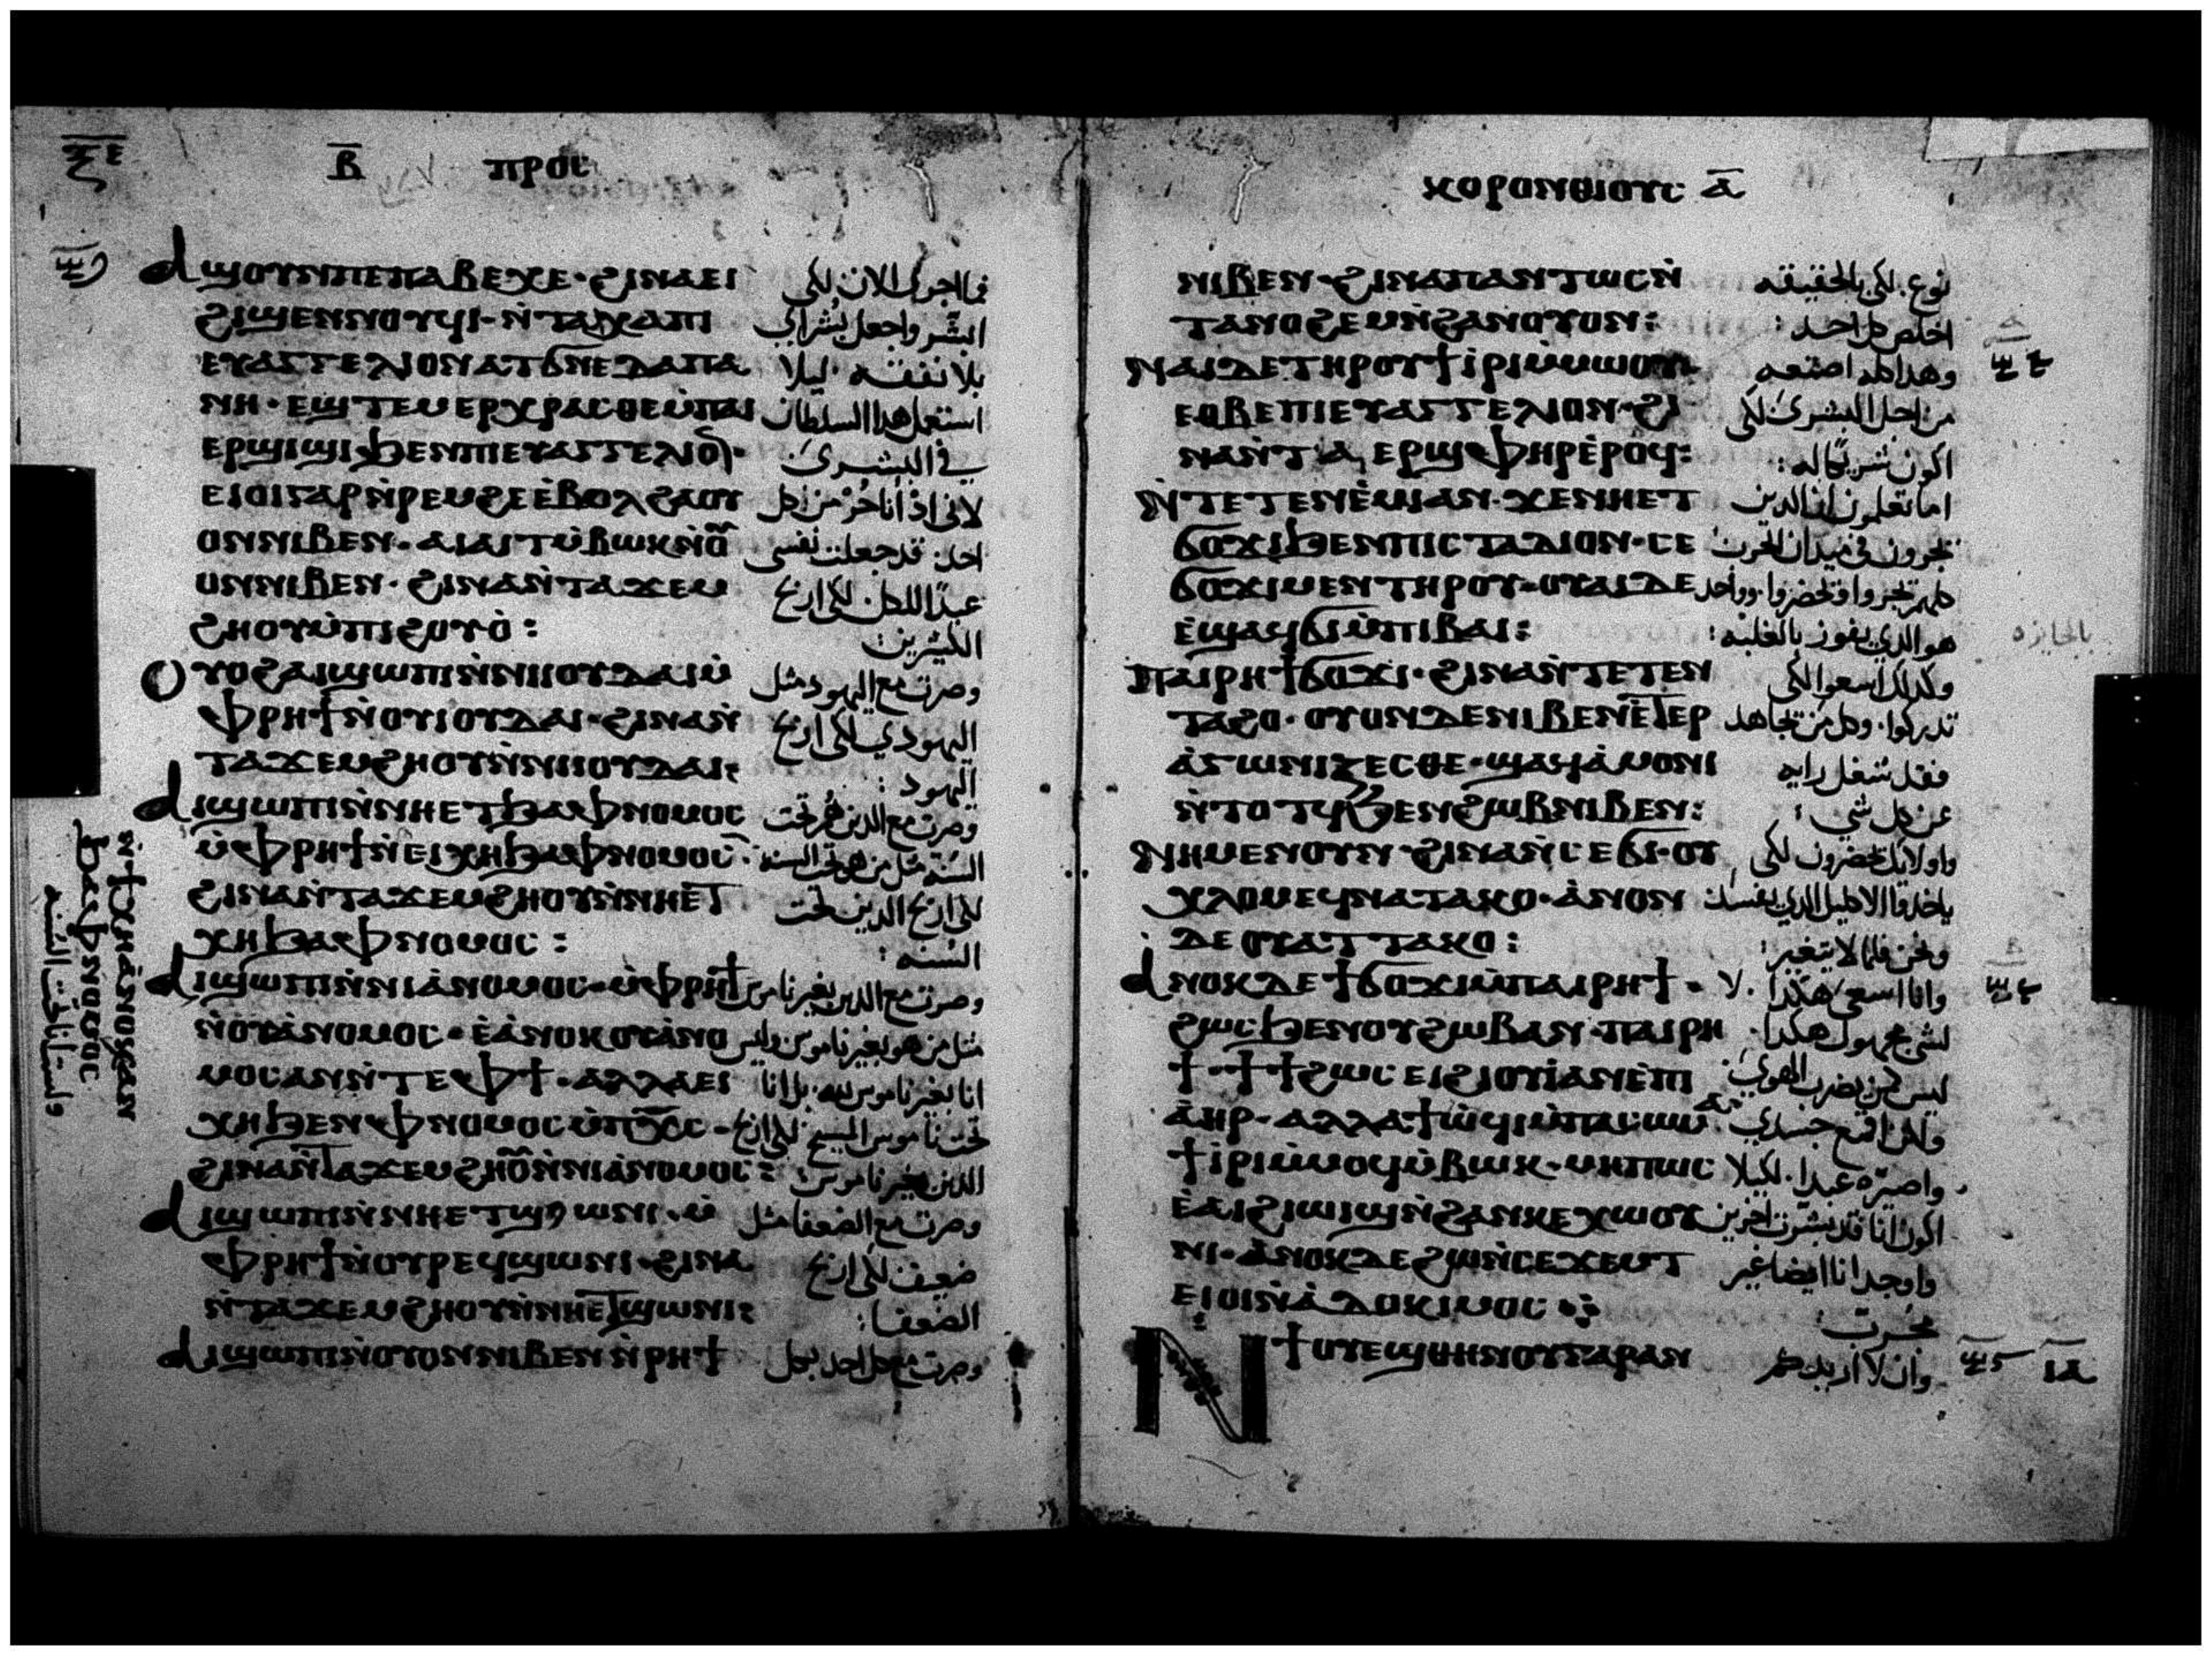 ⲝⲉ
ⲃ̅ ⲡⲣⲟⲥ
ⲁϣⲟⲩⲛⲡⲉⲡⲁⲃⲉⲭⲉ· ϩⲓⲛⲁⲉⲓ فما اجرى الان لكى
ϩⲓϣⲉⲛⲛⲟⲩϥⲓ· ⲛ̀ⲧⲁⲭⲁⲡⲓ ابشر واجعل بشراي
ⲉⲩⲁⲅⲅⲉⲗⲓⲟⲛⲁⲧϭⲛⲉⲇⲁⲡⲁ بلا نفقه ليلا
ⲛⲏ· ⲉϣⲧⲉⲙⲉⲣⲭⲣⲁⲥⲑⲉⲙ̀ⲡⲁⲓ استعمل هدا السلطان
ⲉⲣϣⲓϣⲓϧⲉⲛⲡⲓⲉⲩⲁⲅⲅⲉⲗⲓⲟ̅· في البشرى
ⲉⲓⲟⲓⲅⲁⲣⲛ̀ⲣⲉⲙϩⲉⲉ̀ⲃⲟⲗϩⲁⲟⲩ لانى اذ انا حر من كل
ⲟⲛⲛⲓⲃⲉⲛ· ⲁⲓⲁⲓⲧⲙ̀ⲃⲱⲕⲛ̀ⲟ̅ احد قد جعلت نفسى
ⲟⲛⲛⲓⲃⲉⲛ· ϩⲓⲛⲁⲛ̀ⲧⲁϫⲉⲙ عبدا للكل لكى اربح
ϩⲏⲟⲩⲙ̀ⲡⲓϩⲟⲩⲟ̀: الكثيرين:
ⲟⲩⲟϩⲁⲓϣⲱⲡⲓⲛ̀ⲛⲓⲓⲟⲩⲇⲁⲓⲙ̀ وصرت مع اليهود مثل
ⲫⲣⲏϯⲛ̀ⲟⲩⲓⲟⲩⲇⲁⲓ· ϩⲓⲛⲁⲛ̀ اليهودي لكى اربح
ⲧⲁϫⲉⲙϩⲏⲟⲩⲛ̀ⲛⲓⲓⲟⲩⲇⲁⲓ: اليهود:
ⲁⲓϣⲱⲡⲓⲛ̀ⲛⲏⲉⲧϧⲁⲫⲛⲟⲙⲟⲥ وصرت مع الدين هم تحت
ⲙ̀ⲫⲣⲏϯⲛ̀ⲉⲓⲭⲏϧⲁⲫⲛⲟⲙⲟⲥ· السنه مثل من هو تحت السنه
ϩⲓⲛⲁⲛ̀ⲧⲁϫⲉⲙϩⲏⲟⲩⲛ̀ⲛⲏⲉⲧ لكى اربح الدين تحت
ⲭⲏϧⲁⲫⲛⲟⲙⲟⲥ: السنه:
ⲁⲓϣⲱⲡⲓⲛ̀ⲛⲓⲁ̀ⲛⲟⲙⲟⲥ· ⲙ̀ⲫⲣⲏϯ وصرت مع الدين بغير ناموس
ⲛ̀ⲟⲩⲁ̀ⲛⲟⲙⲟⲥ· ⲉ̀ⲁ̀ⲛⲟⲕⲟⲩⲁ̀ⲛⲟ مثل من هو بغير ناموس وليس
ⲙⲟⲥⲁⲛⲛ̀ⲧⲉⲫϯ· ⲁⲗⲗⲁⲉⲓ انا بغير ناموس لله بل انا
ⲭⲏϧⲉⲛⲫⲛⲟⲙⲟⲥⲙ̀ⲡⲭ̅ⲥ· تحت ناموس المسيح لكى اربح
ϩⲓⲛⲁⲛ̀ⲧⲁϫⲉⲙϩⲏⲟ̅ⲛ̀ⲛⲓⲁ̀ⲛⲟⲙⲟⲥ: الدين بغير ناموس
ⲁⲓϣⲱⲡⲓⲛ̀ⲛⲏⲉⲧϣⲱⲛⲓ· ⲙ̀ وصرت مع الضعفا مثل
ⲫⲣⲏϯⲛ̀ⲟⲩⲣⲉϥϣⲱⲛⲓ· ϩⲓⲛⲁ ضعيف لكى اربح
ⲛ̀ⲧⲁϫⲉⲙϩⲏⲟⲩⲛ̀ⲛⲏⲉⲧϣⲱⲛⲓ: الضعفا:
ⲁⲓϣⲱⲡⲓⲛ̀ⲟⲩⲟⲛⲛⲓⲃⲉⲛⲛ̀ⲣⲏϯ وصرت مع كل احد بكل
ⲛ̀ϯⲭⲏⲁ̀ⲛⲟⲕⲁⲛ
ϧⲁⲫⲛⲟⲙⲟⲥ
ولست انا تحت السنه
ⲕⲟⲣⲓⲛⲑⲓⲟⲩⲥ ⲁ̅
ⲛⲓⲃⲉⲛ· ϩⲓⲛⲁⲡⲁⲛⲧⲱⲥⲛ̀ نوع. لكى بالحقيقه
ⲧⲁⲛⲟϩⲉⲙⲛ̀ϩⲁⲛⲟⲩⲟⲛ: اخلص كل احد:
ⲛⲁⲓⲇⲉⲧⲏⲣⲟⲩϯⲓ̀ⲣⲓⲙ̀ⲙⲱⲟⲩ وهدا كله اصنعه
ⲉⲑⲃⲉⲡⲓⲉⲩⲁⲅⲅⲉⲗⲓⲟⲛ· ϩⲓ من اجل البشرى لكى
ⲛⲁⲛ̀ⲧⲁⲉⲣϣⲫⲏⲣⲉ̀ⲣⲟϥ: اكون شريكا له:
ⲛ̀ⲧⲉⲧⲉⲛⲉ̀ⲙⲓⲁⲛ· ϫⲉⲛⲏⲉⲧ اما تعلمون ان الدين
ϭⲟϫⲓϧⲉⲛⲡⲓⲥⲧⲁⲇⲓⲟⲛ· ⲥⲉ يجرون في ميدان الحرب
ϭⲟϫⲓⲙⲉⲛⲧⲏⲣⲟⲩ· ⲟⲩⲁⲓⲇⲉ كلهم
ⲉ̀ϣⲁϥϭⲓⲙ̀ⲡⲓⲃⲁⲓ: هو الدي يفوز بالغلبه:
ⲡⲁⲓⲣⲏϯϭⲟϫⲓ· ϩⲓⲛⲁⲛ̀ⲧⲉⲧⲉⲛ وكدلك اسعوا لكى
ⲧⲁϩⲟ· ⲟⲩⲟⲛⲇⲉⲛⲓⲃⲉⲛⲉ̀ⲧⲉⲣ تدركوا. وكل من يجاهد
ⲁ̀ⲅⲱⲛⲓⲍⲉⲥⲑⲉ· ϣⲁϥⲁ̀ⲙⲟⲛⲓ فقد شغل رايه
ⲛ̀ⲧⲟⲧϥϧⲉⲛϩⲱⲃⲛⲓⲃⲉⲛ: عن كل شى:
ⲛⲏⲙⲉⲛⲟⲩⲛ· ϩⲓⲛⲁⲛ̀ⲥⲉϭⲓ· ⲟⲩ واولايك يحضرون لكى
ⲭⲗⲟⲙⲉϥⲛⲁⲧⲁⲕⲟ· ⲁ̀ⲛⲟⲛ ياخدوا الاكليل الدي يفسد
ⲇⲉⲟⲩⲁⲧⲧⲁⲕⲟ: ونحن فلما لا يتغير:
ⲁⲛⲟⲕⲇⲉϯϭⲟϫⲓⲙ̀ⲡⲁⲓⲣⲏϯ· وانا اسعى هكدا. لا
ϩⲱⲥϧⲉⲛⲟⲩϩⲱⲃⲁⲛ· ⲡⲁⲓⲣⲏ لشى مجهول هكدا
ϯ· ϯϯϩⲱⲥⲉⲓϩⲓⲟⲩⲓ̀ⲁⲛⲉ̀ⲡⲓ ليس كمن يضرب الهوى
ⲁ̀ⲏⲣ· ⲁⲗⲗⲁϯⲱ̀ϥⲓⲙ̀ⲡⲁⲥⲱⲙⲁ ولكن اقمع جسدي
ϯⲓ̀ⲣⲓⲙ̀ⲙⲟϥⲙ̀ⲃⲱⲕ· ⲙⲏⲡⲱⲥ واصيره عبدا. لكيلا
ⲉ̀ⲁⲓϩⲓⲱⲓϣⲛ̀ϩⲁⲛⲕⲉⲭⲱⲟⲩ اكون انا قد بشرت اخرين
ⲛⲓ· ⲁ̀ⲛⲟⲕⲇⲉϩⲱⲛ̀ⲥⲉϫⲉⲙⲧ واوجد انا ايضا غير
ⲉⲓⲟⲓⲛ̀ⲁ̀ⲇⲟⲕⲓⲙⲟⲥ مجرب:
ⲛ̀ϯⲟⲩⲉϣⲑⲏⲛⲟⲩⲅⲁⲣⲁⲛ وان لا اريدكم
ⲓⲁ
بالجايزه